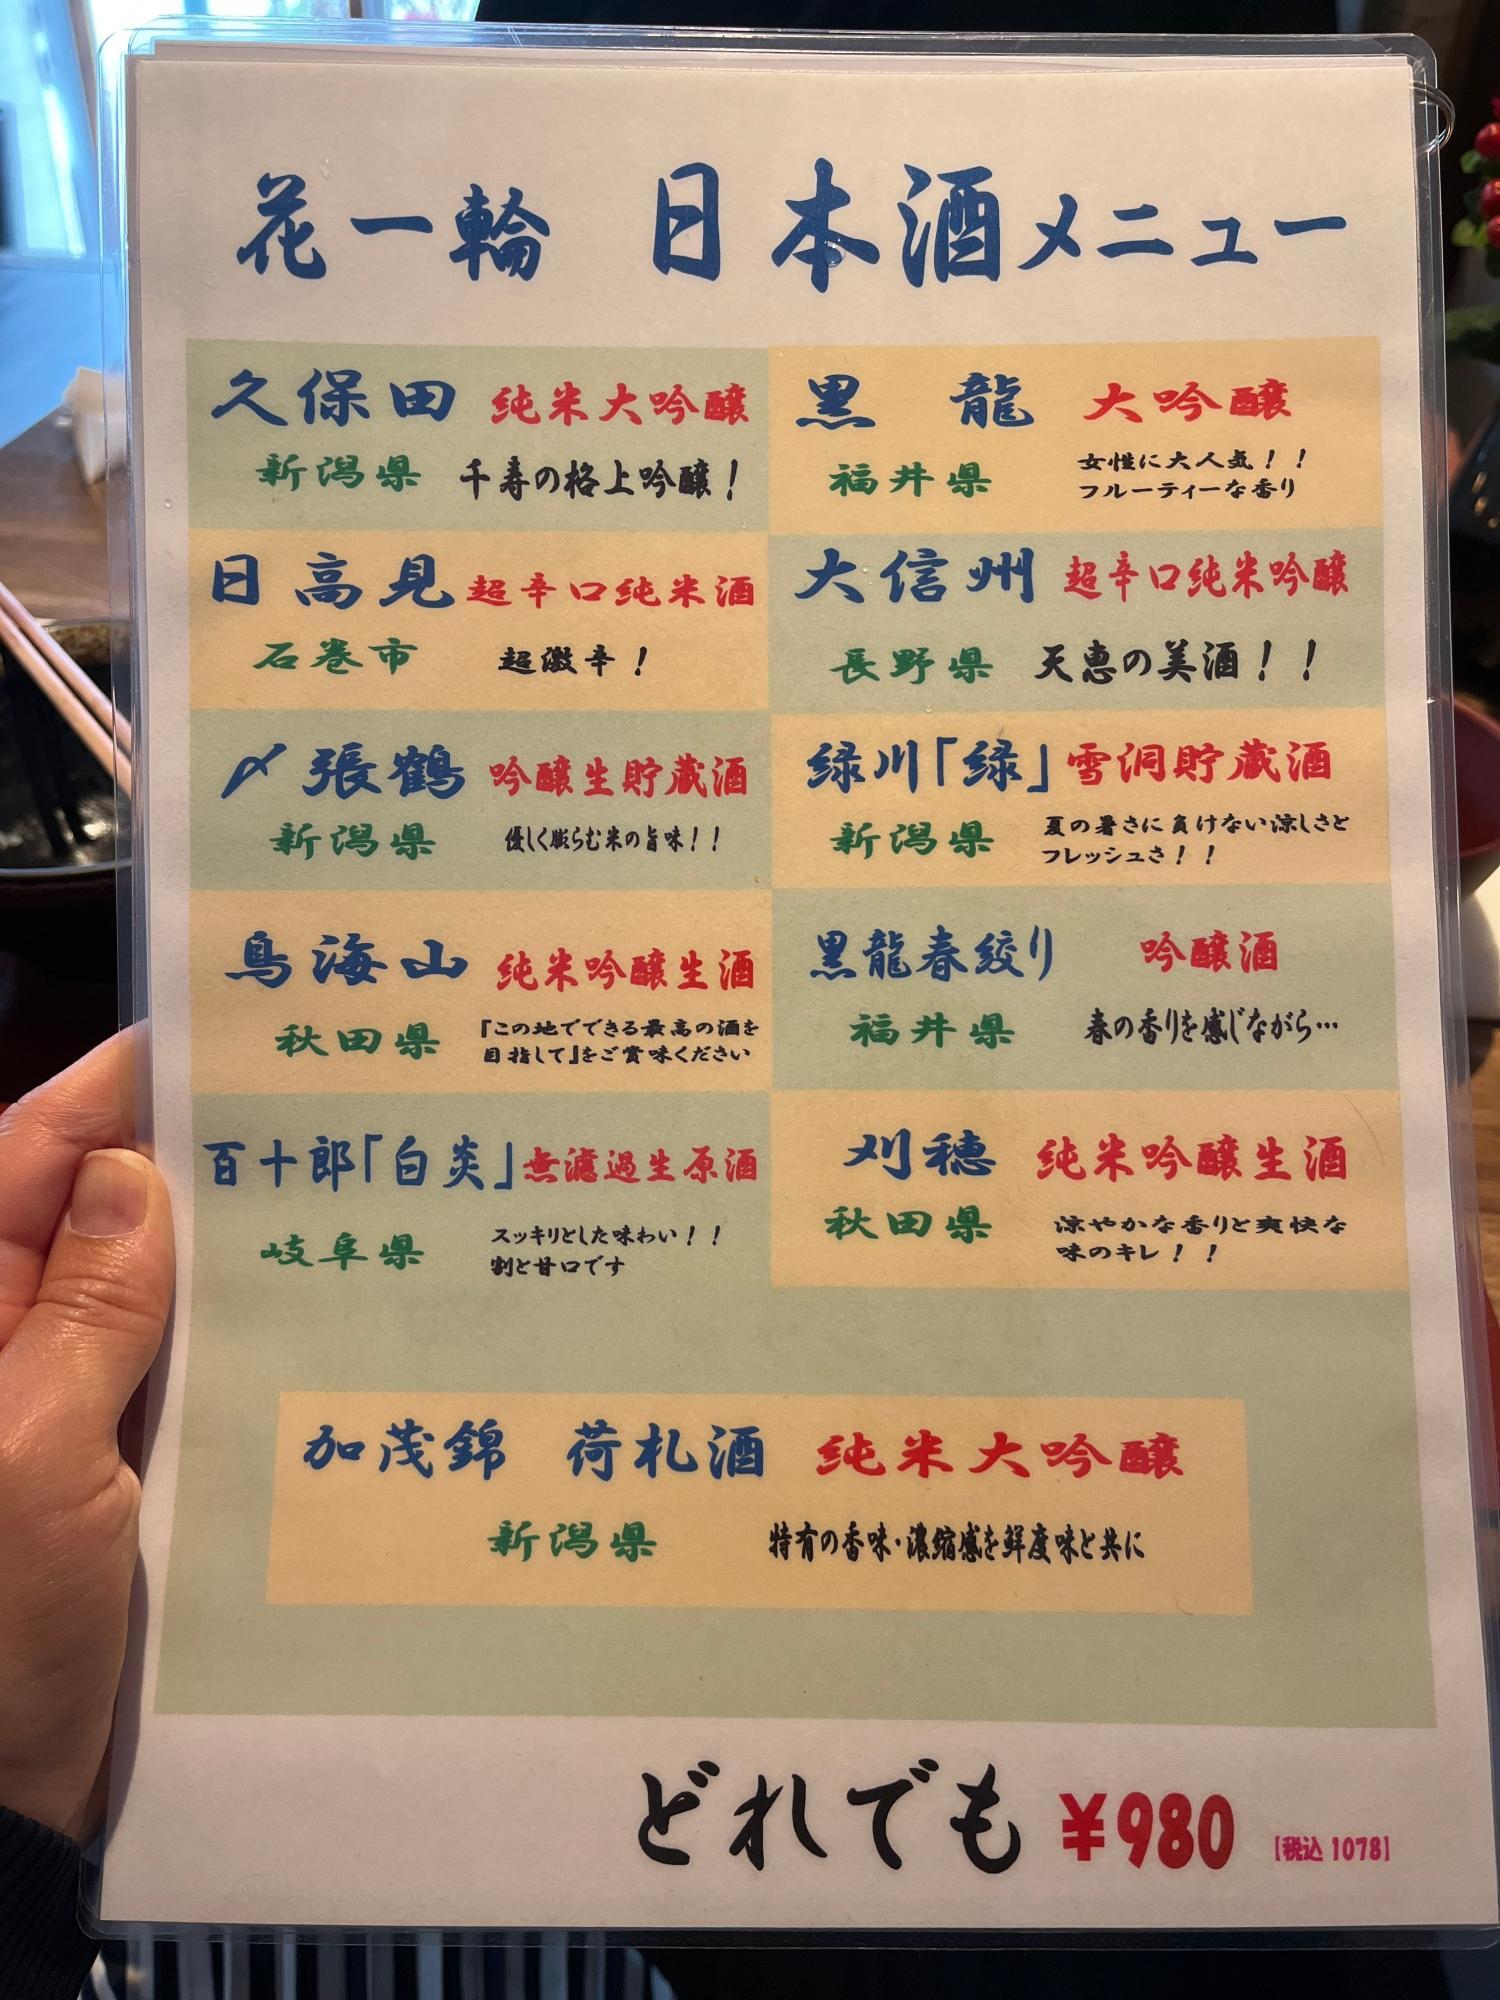 花一輪 日本酒メニュー
久保田 純米大吟醸
新潟県 千寿の格上吟醸！
黒 龍 大吟醸
福井県 女性に大人気！！
フルーティーな香り
日高見 超辛口純米酒
石巻市 超激辛！
大信州 超辛口純米吟醸
長野県 天恵の美酒！！
〆張鶴 吟醸生貯蔵酒
新潟県 優しく膨らむ米の旨味！！
緑川「緑」雪洞貯蔵酒
新潟県 夏の暑さに負けない涼しさと
フレッシュさ！！
鳥海山 純米吟醸生酒
秋田県 『この地でできる最高の酒を
目指して』をご賞味ください
黒龍春絞り 吟醸酒
福井県 春の香りを感じながら…
百十郎「白炎」無濾過生原酒
岐阜県 スッキリとした味わい！！
割と甘口です
刈穂 純米吟醸生酒
秋田県 涼やかな香りと爽快な
味のキレ！！
加茂錦 荷札酒 純米大吟醸
新潟県 特有の香味・濃縮感を鮮度味と共に
どれでも ￥980 【税込 1078】